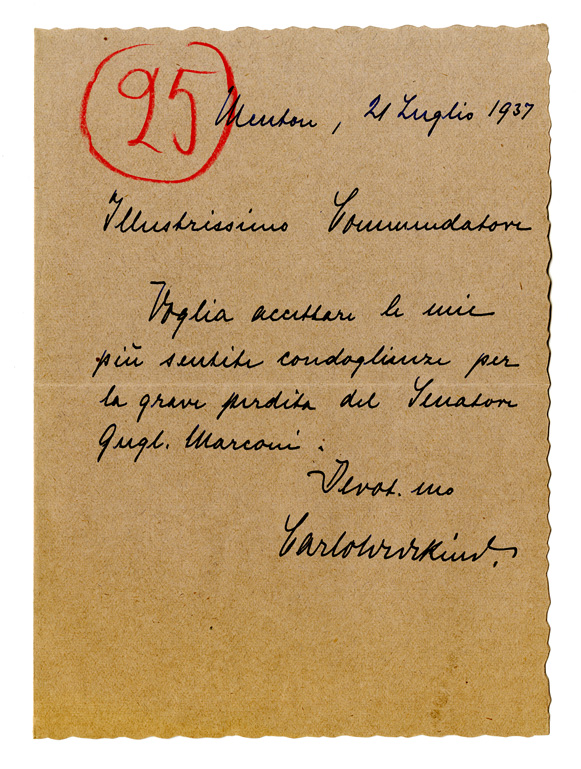 25
Menton, 21 Luglio 1937
Illustrissimo Commendatore
Voglia accettare le mie
più sentite condoglianze per
la grave perdita del Senatore
Gugl. Marconi.
Devot.mo
Carlo